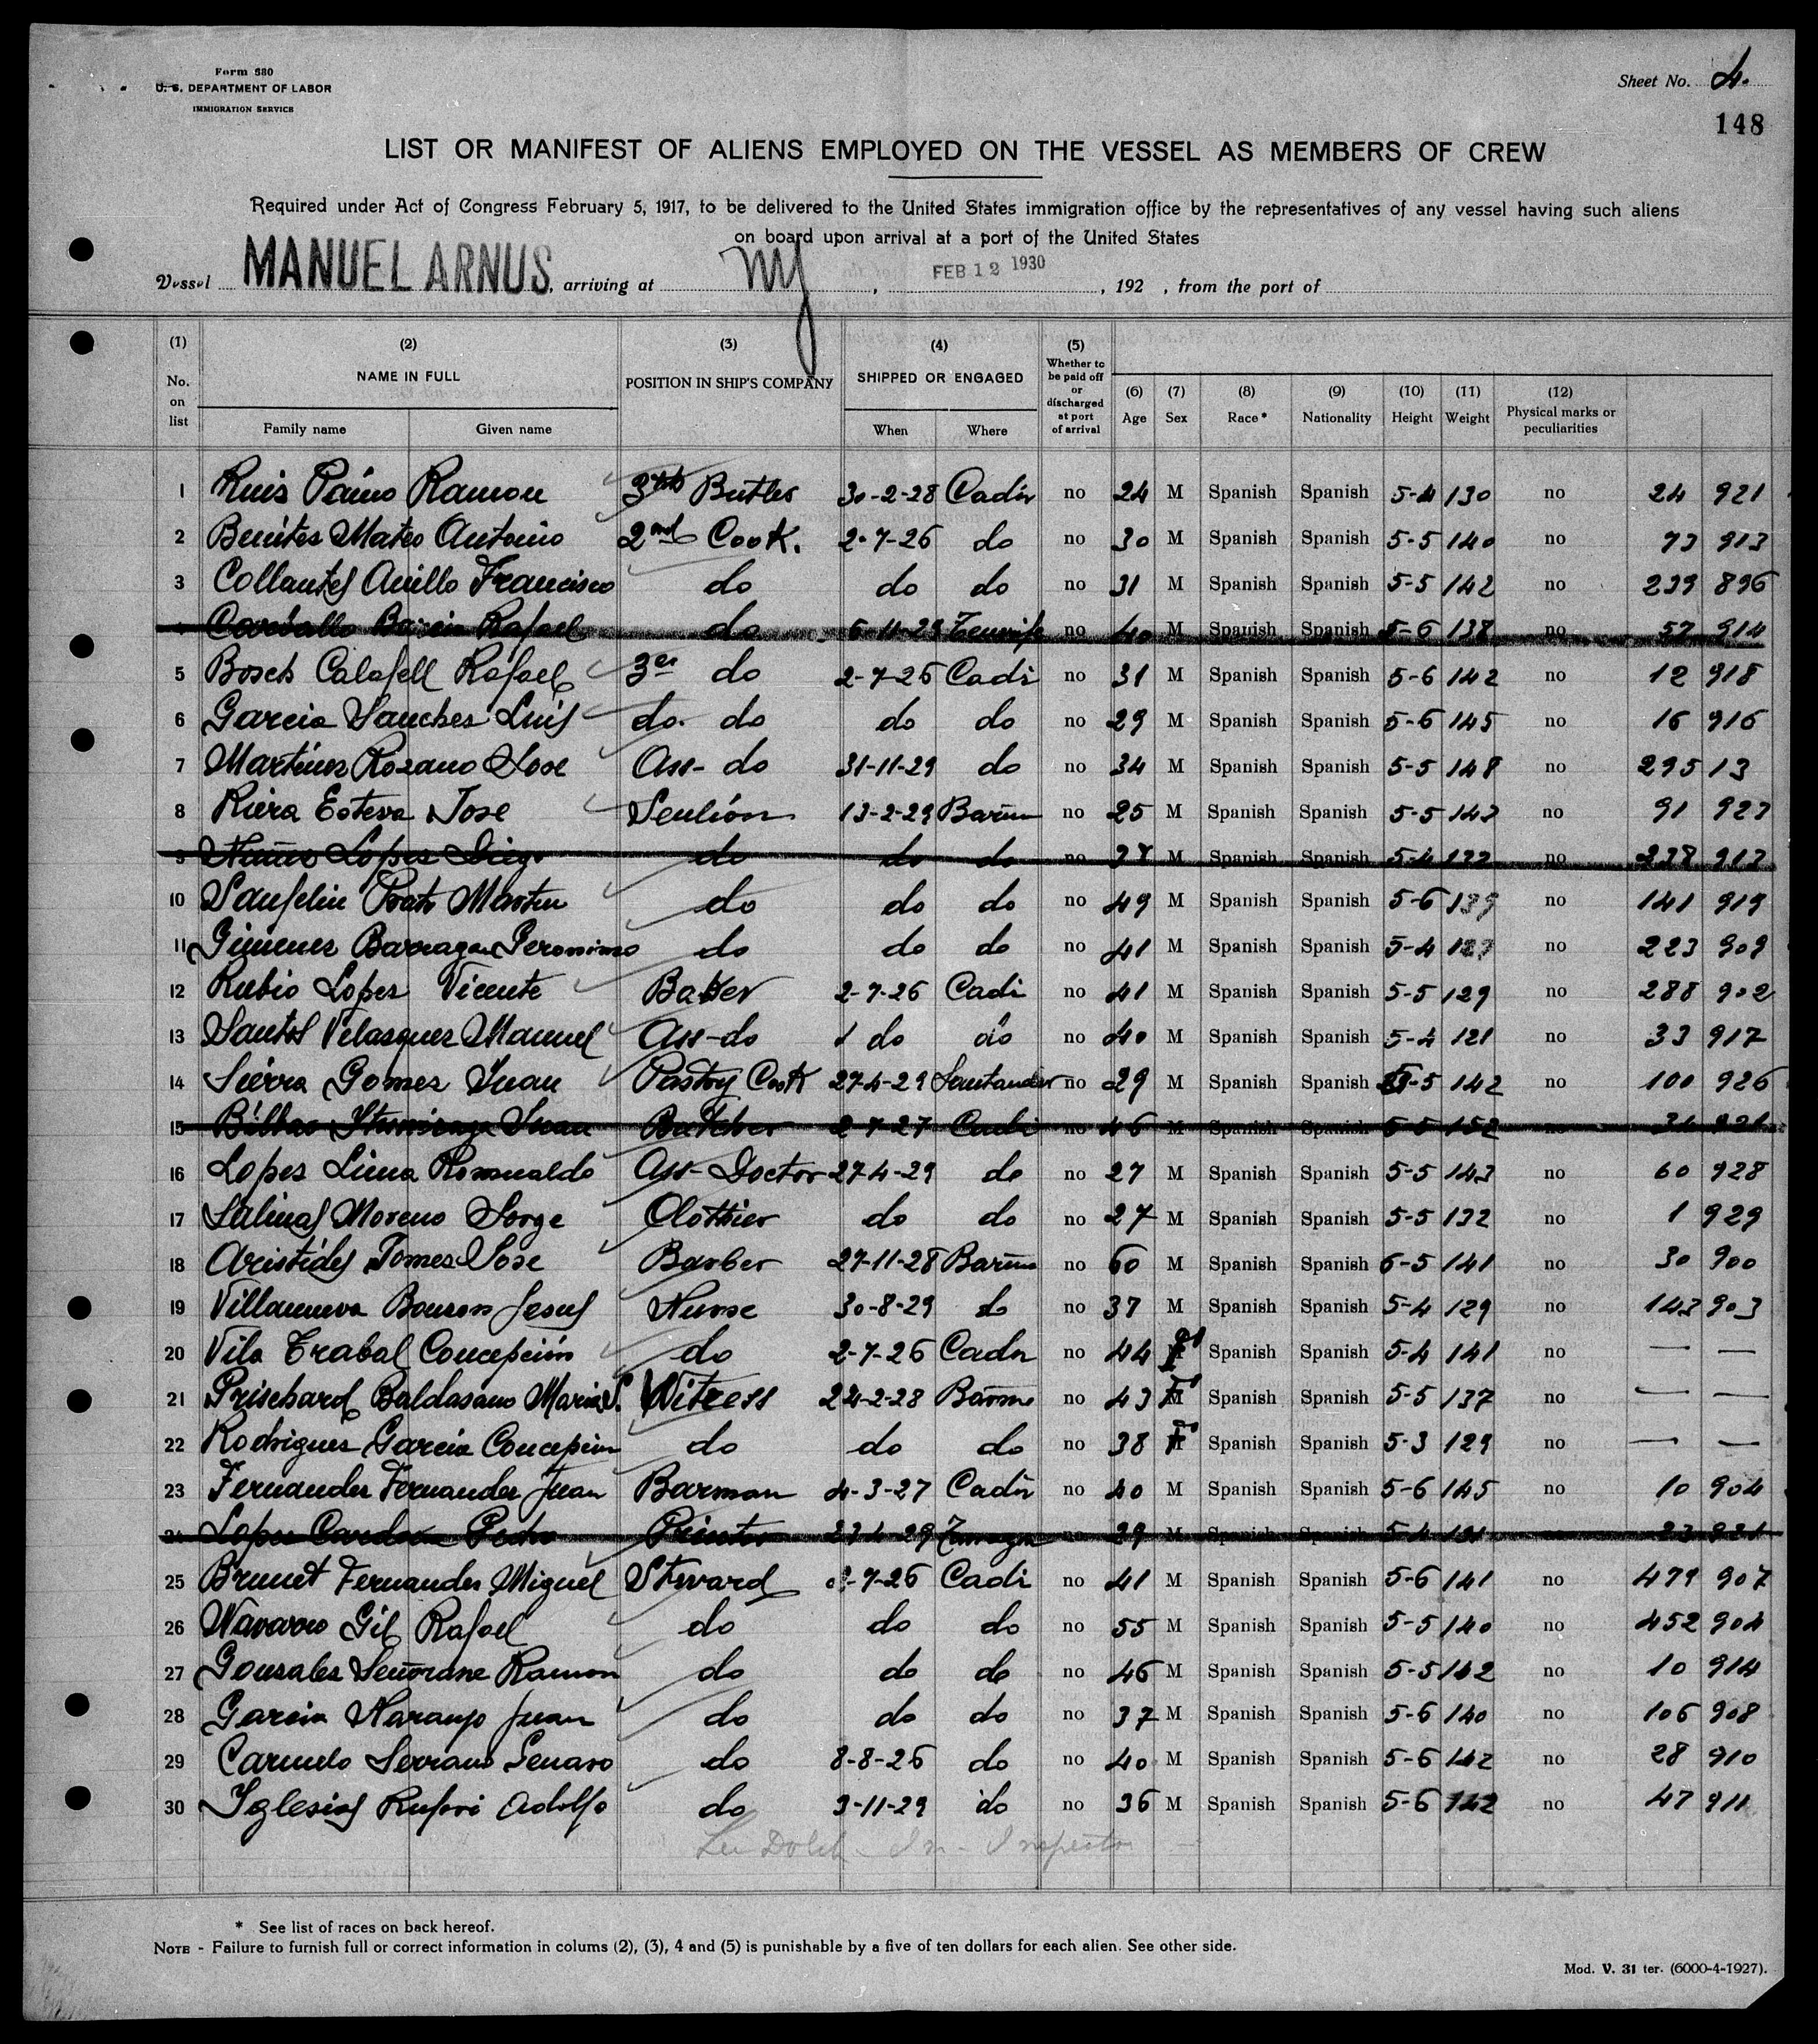 Form 680
U. S. DEPARTMENT OF LABOR
IMMIGRATION SERVICE
Sheet No. 4.
148
LIST OR MANIFEST OF ALIENS EMPLOYED ON THE VESSEL AS MEMBERS OF CREW
Required under Act of Congress February 5, 1917, to be delivered to the United States immigration office by the representatives of any vessel having such aliens
on board upon arrival at a port of the United States
Vessel MANUEL ARNUS, arriving at NY, FEB 12 1930, 192 , from the port of
(1) (2) (3) (4) (5)
No. on list NAME IN FULL POSITION IN SHIP'S COMPANY SHIPPED OR ENGAGED Whether to be paid off or discharged at port of arrival
(6) (7) (8) (9) (10) (11) (12)
Family name Given name When Where Age Sex Race* Nationality Height Weight Physical marks or peculiarities
1 Ruis Paino Ramon 3rd Butler 30-2-28 Cadiz no 24 M Spanish Spanish 5-4 130 no 24 921
2 Benites Mateo Antonio 2nd Cook. 2-7-26 do no 30 M Spanish Spanish 5-5 140 no 73 913
3 Collantes Francisco do do do no 31 M Spanish Spanish 5-5 142 no 239 896
4 Rafael do 6-11-29 Tenerife no 40 M Spanish Spanish 5-6 138 no 57 914
5 Bosch Calafell Rafael 3er do 2-7-26 Cadi no 31 M Spanish Spanish 5-6 142 no 12 918
6 Garcia Sanches Luis do. do do do no 29 M Spanish Spanish 5-6 145 no 16 916
7 Martines Rozano Jose Ass- do 31-11-29 do no 34 M Spanish Spanish 5-5 148 no 295 13
8 Riera Esteva Jose 13-2-29 no 25 M Spanish Spanish 5-5 143 no 91 923
9 Lopes Diego do do do no M Spanish Spanish 5-4 132 no 238 913
10 Sanfeliu Prats Martin do do do no 49 M Spanish Spanish 5-6 139 no 141 919
11 Gimenes Barragan Geronimo do do do no 41 M Spanish Spanish 5-4 no 223 909
12 Rubio Lopes Vicente Baker 2-7-26 Cadi no 41 M Spanish Spanish 5-5 129 no 288 902
13 Santos Velasques Manuel Ass-do do do no 40 M Spanish Spanish 5-4 121 no 33 917
14 Sierra Gomes Juan Pastry Cook 27-4-29 Santander no 29 M Spanish Spanish 5-5 142 no 100 926
15 Bilbao Juan Butcher 2-7-27 Cadi no 46 M Spanish Spanish 5-5 152 no
16 Lopes Lima Romualdo Ass- Doctor 27-4-29 do no 27 M Spanish Spanish 5-5 143 no 60 928
17 Salinas Moreno Jorge Clothier do do no 27 M Spanish Spanish 5-5 132 no 1 929
18 Aristides Tomes Jose Barber 27-11-28 no 60 M Spanish Spanish 6-5 141 no 30 900
19 Villanueva Jesus Nurse 30-8-29 do no 37 M Spanish Spanish 5-4 129 no 143 903
20 Vila Trabal Concepción do 2-7-26 Cadiz no 44 F Spanish Spanish 5-4 141 no — —
21 Prischard Baldasano Maria S. Witress 24-2-28 no 43 F Spanish Spanish 5-5 137 no — —
22 Rodrigues Garcia Concepcion do do do no 38 F Spanish Spanish 5-3 129 no — —
23 Fernandes Fernandes Juan Barman 4-3-27 Cadiz no 40 M Spanish Spanish 5-6 145 no 10 904
24 Lopes Cardona Pedro Printer 23-4-29 no 29 M Spanish Spanish 5-4 no
25 Brunet Fernandes Miguel Steward 2-7-26 Cadi no 41 M Spanish Spanish 5-6 141 no 479 907
26 Navarro Gil Rafael do do do no 55 M Spanish Spanish 5-5 140 no 452 904
27 Gonsales Ramon do do do no 46 M Spanish Spanish 5-5 142 no 10 914
28 Garcia Naranjo Juan do do do no 37 M Spanish Spanish 5-6 140 no 106 908
29 Serrano Genaro do 8-8-26 do no 40 M Spanish Spanish 5-6 142 no 28 910
30 Iglesias Adolfo do 3-11-29 do no 36 M Spanish Spanish 5-6 142 no 47 911
Inspector
* See list of races on back hereof.
NOTE - Failure to furnish full or correct information in colums (2), (3), 4 and (5) is punishable by a five of ten dollars for each alien. See other side.
Mod. V. 31 ter. (6000-4-1927).